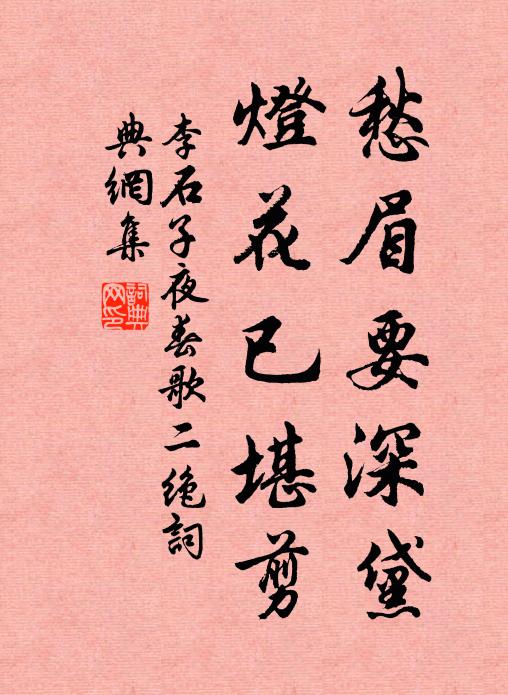 愁眉要深黛
燈花已堪剪
李石子夜春歌二绝詞
典網集
詞典
网印